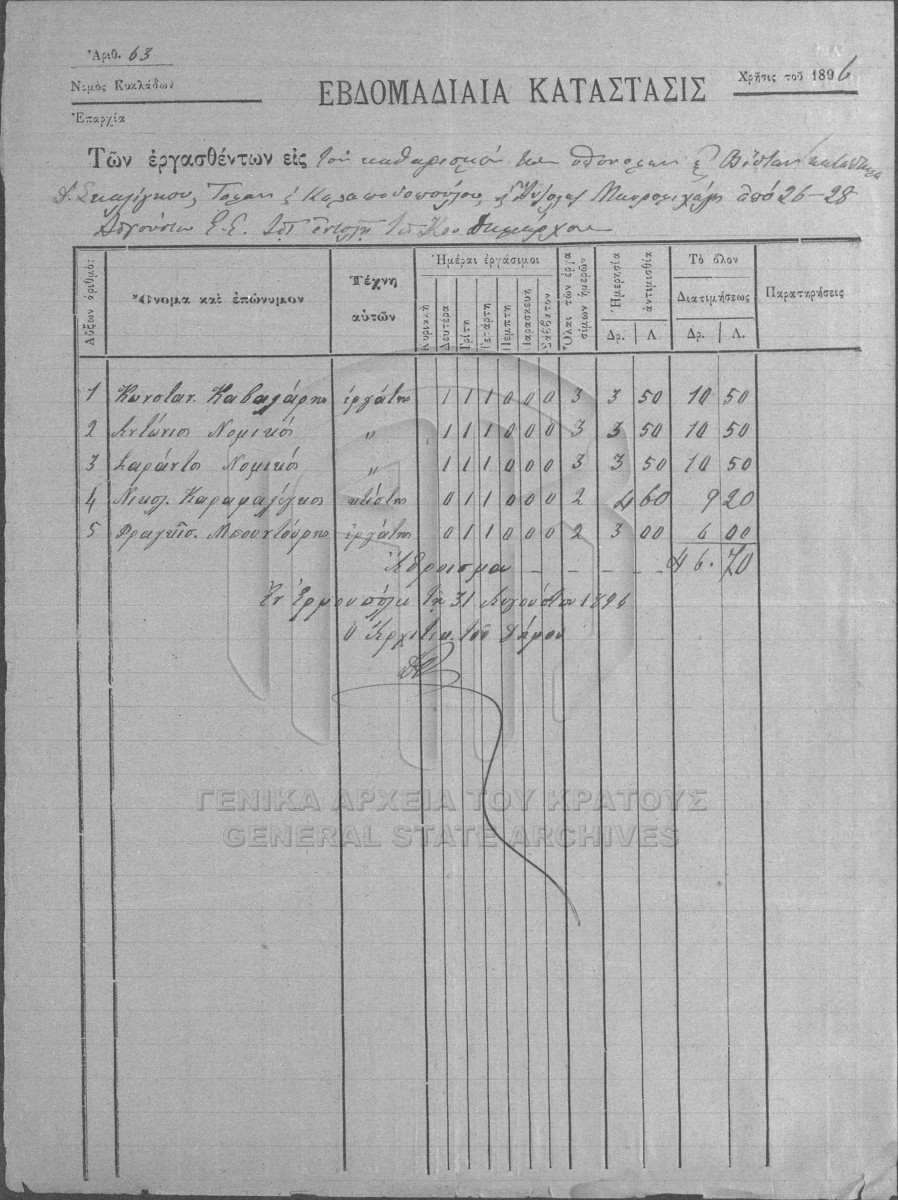 Ἀριθ. 63
Νομὸς Κυκλάδων
Ἐπαρχία
ΕΒΔΟΜΑΔΙΑΙΑ ΚΑΤΑΣΤΑΣΙΣ
Χρῆσις τοῦ 1896
Τῶν ἐργασθέντων εἰς τὸν καθαρισμὸν των υπονόμων
Μαυρομιχάλη ἀπὸ 26-28
Αὐγούστου Ε.Ε. ἐντολῇ Δημάρχου
Αὔξων ἀριθμός:
Ὄνομα καὶ ἐπώνυμον
Τέχνη αὐτῶν
Ἡμέραι ἐργάσιμοι
Κυριακὴ
Δευτέρα
Τρίτη
Τετάρτη
Πέμπτη
Παρασκευὴ
Σάββατον
Ὅλαι τῶν ἐργασίμων ἡμερῶν
Ἡμερησία ἀντιμισθία
Δρ. Λ.
Τὸ ὅλον
Διατιμήσεως
Δρ. Λ.
Παρατηρήσεις
1 Κωνσταν. ἐργάτης 1 1 1 0 0 0 3 3 50 10 50
2 Αντώνιος Νομικός " 1 1 1 0 0 0 3 3 50 10 50
3 Σαράντος Νομικός " 1 1 1 0 0 0 3 3 50 10 50
4 Νικολ. κτίστης 0 1 1 0 0 0 2 4 60 9 20
5 ἐργάτης 0 1 1 0 0 0 2 3 00 6 00
Ἄθροισμα - - - - - 46.70
Ἐν Ἑρμουπόλει τῇ 31 Αυγούστου 1896
Ὁ Ἀρχιτέκ. τοῦ Δήμου
ΓΕΝΙΚΑ ΑΡΧΕΙΑ ΤΟΥ ΚΡΑΤΟΥΣ
GENERAL STATE ARCHIVES